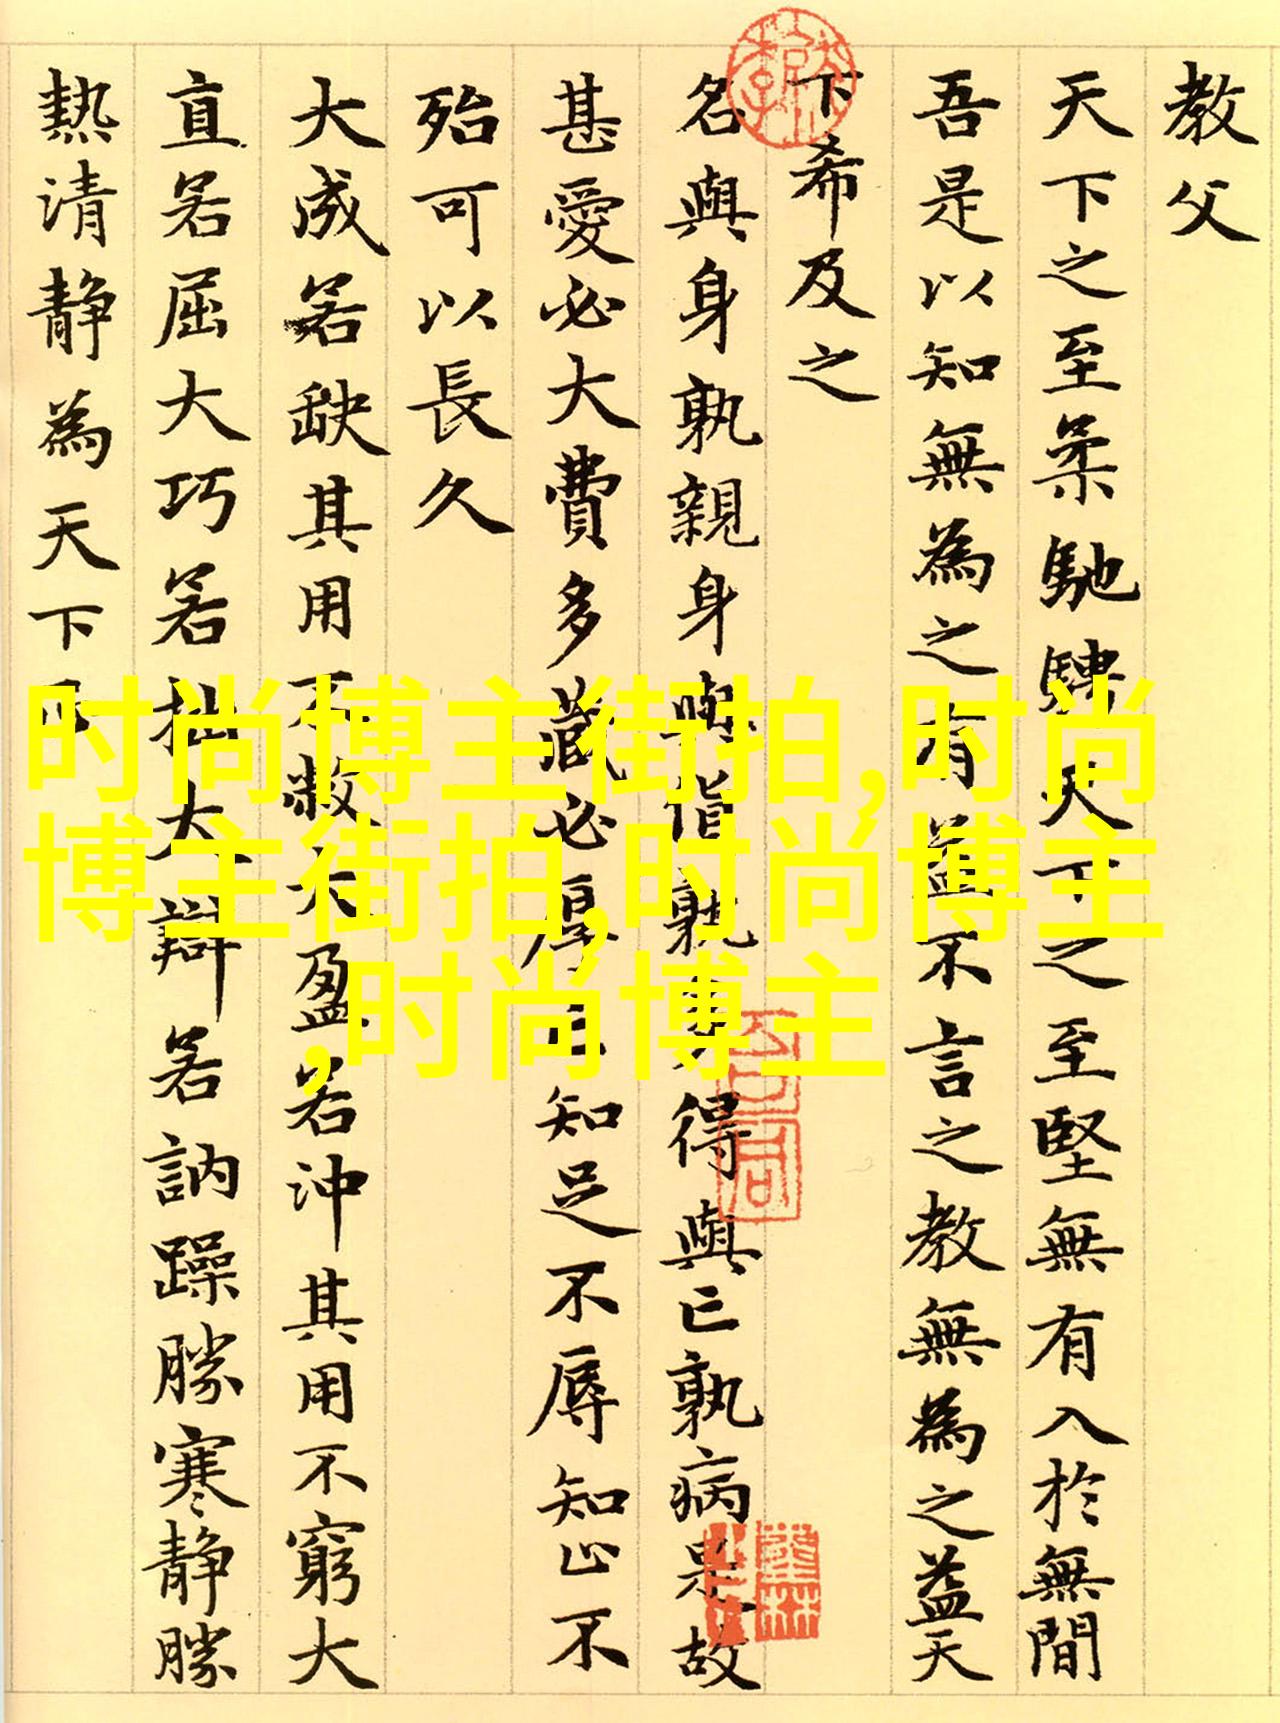 教父
天下之至柔馳騁天下之至堅無有入於無間
吾是以知無為之有益不言之教無為之益天
下希及之
名與身孰親身與貨孰多得與亡孰病是故
甚愛必大費多藏必厚亡知足不辱知止不
殆可以長久
大成若缺其用不敝大盈若沖其用不窮大
直若屈大巧若拙大辯若訥躁勝寒靜勝
熱清靜為天下正
时尚博主街拍,时尚
博主街拍,时尚博主
,时尚博主